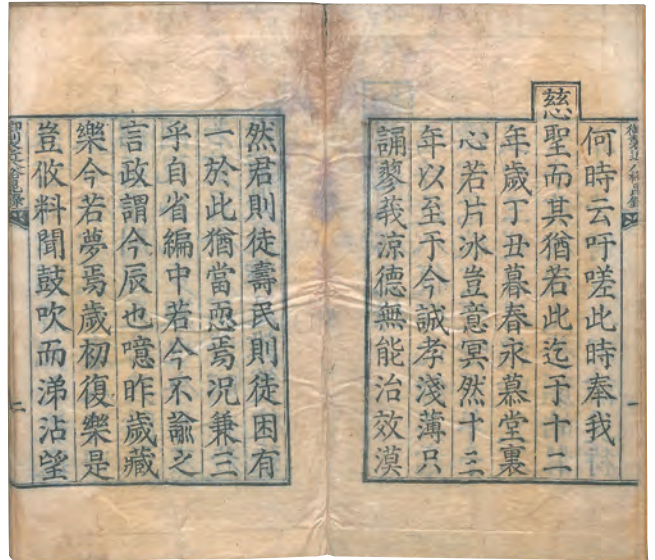 一
何時云吁嗟此時奉我
慈聖而其猶若此迄于十二
年歲丁丑暮春永慕堂裏
心若片冰豈意冥然十三
年以至于今誠孝淺薄只
誦蓼莪涼德無能治效漠
然君則徒壽民則徒困有
一於此猶當恧焉況兼三
乎自省編中若今不諭之
言政謂今辰也噫昨歲藏
樂今若夢焉歲初復樂是
豈攸料聞鼓吹而涕沾望
二